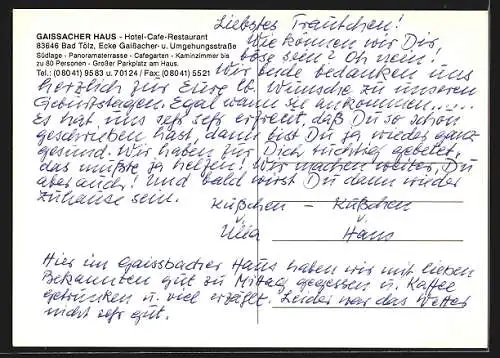 GAISSACHER HAUS - Hotel-Cafe-Restaurant
83646 Bad Tölz, Ecke Gaißacher- u. Umgehungsstraße
Südlage - Panoramaterrasse - Cafegarten - Kaminzimmer bis
zu 80 Personen - Großer Parkplatz am Haus.
Tel.: (08041) 9583 u. 70124 / Fax: (08041) 5521
Liebstes Trautchen!
Wie können wir Dir
böse sein? Oh nein!
Wir beide bedanken uns
herzlich für Eure lb. Wünsche zu unseren
Geburtstagen. Egal wann sie ankommen.....
Es hat uns sehr sehr erfreut, daß Du so schön
geschrieben hast, dann bist Du ja wieder ganz
gesund. Wir haben für Dich tüchtig gebetet,
das mußte ja helfen! Wir machen weiter, Du
aber auch! Und bald wirst Du dann wieder
zuhause sein.
Küßchen - Küßchen
v. v.
Hans
Hier im Gaissbacher Haus haben wir mit lieben
Bekannten gut zu Mittag gegessen u. Kaffee
getrunken u. viel erzählt. Leider war das Wetter
nicht sehr gut.